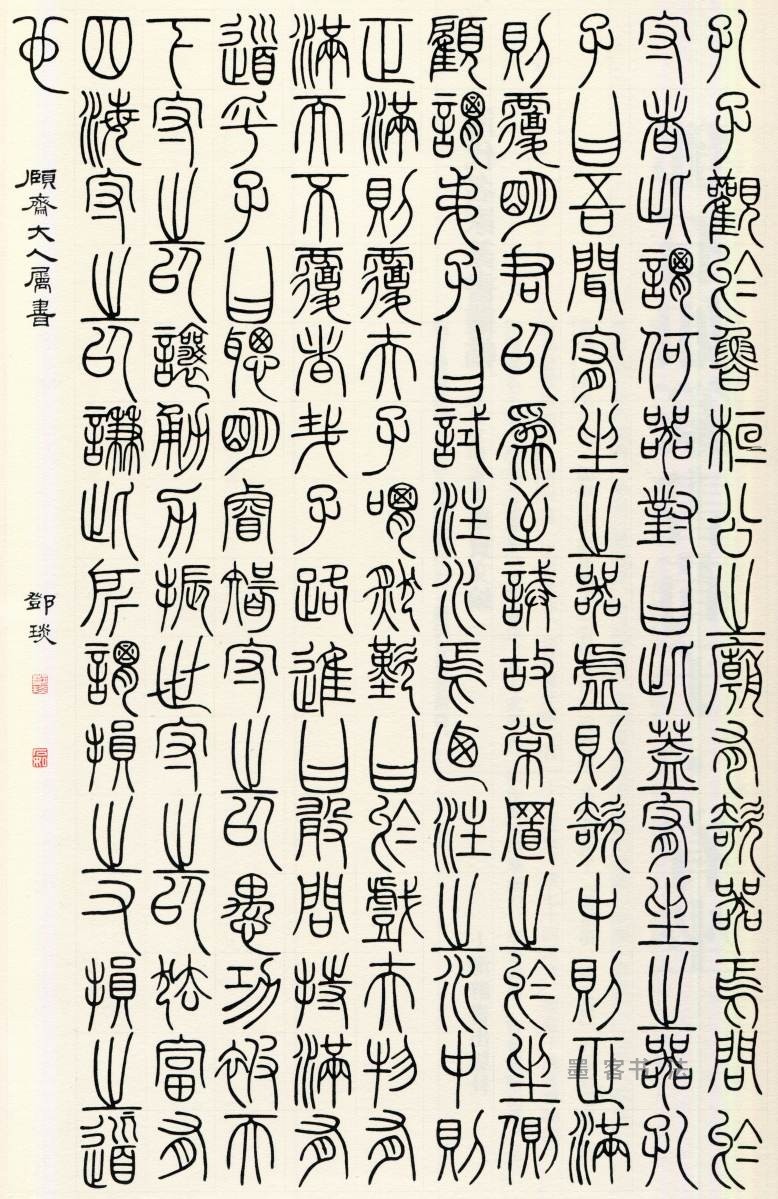 孔子觀於魯桓公之廟有欹器焉問於
守者此謂何器對曰此蓋宥坐之器孔
子曰吾聞宥坐之器虛則欹中則正滿
則覆明君以為至誡故常置之於坐側
顧謂弟子曰試注水焉迺注之水中則
正滿則覆夫子喟然歎曰於戲夫物有
滿而不覆者哉子路進曰敢問持滿有
道乎子曰聰明睿智守之以愚功被天
下守之以讓勇力振世守之以怯富有
四海守之以謙此所謂損之又損之道
也
頤齋大人屬書
鄧琰
墨客书法